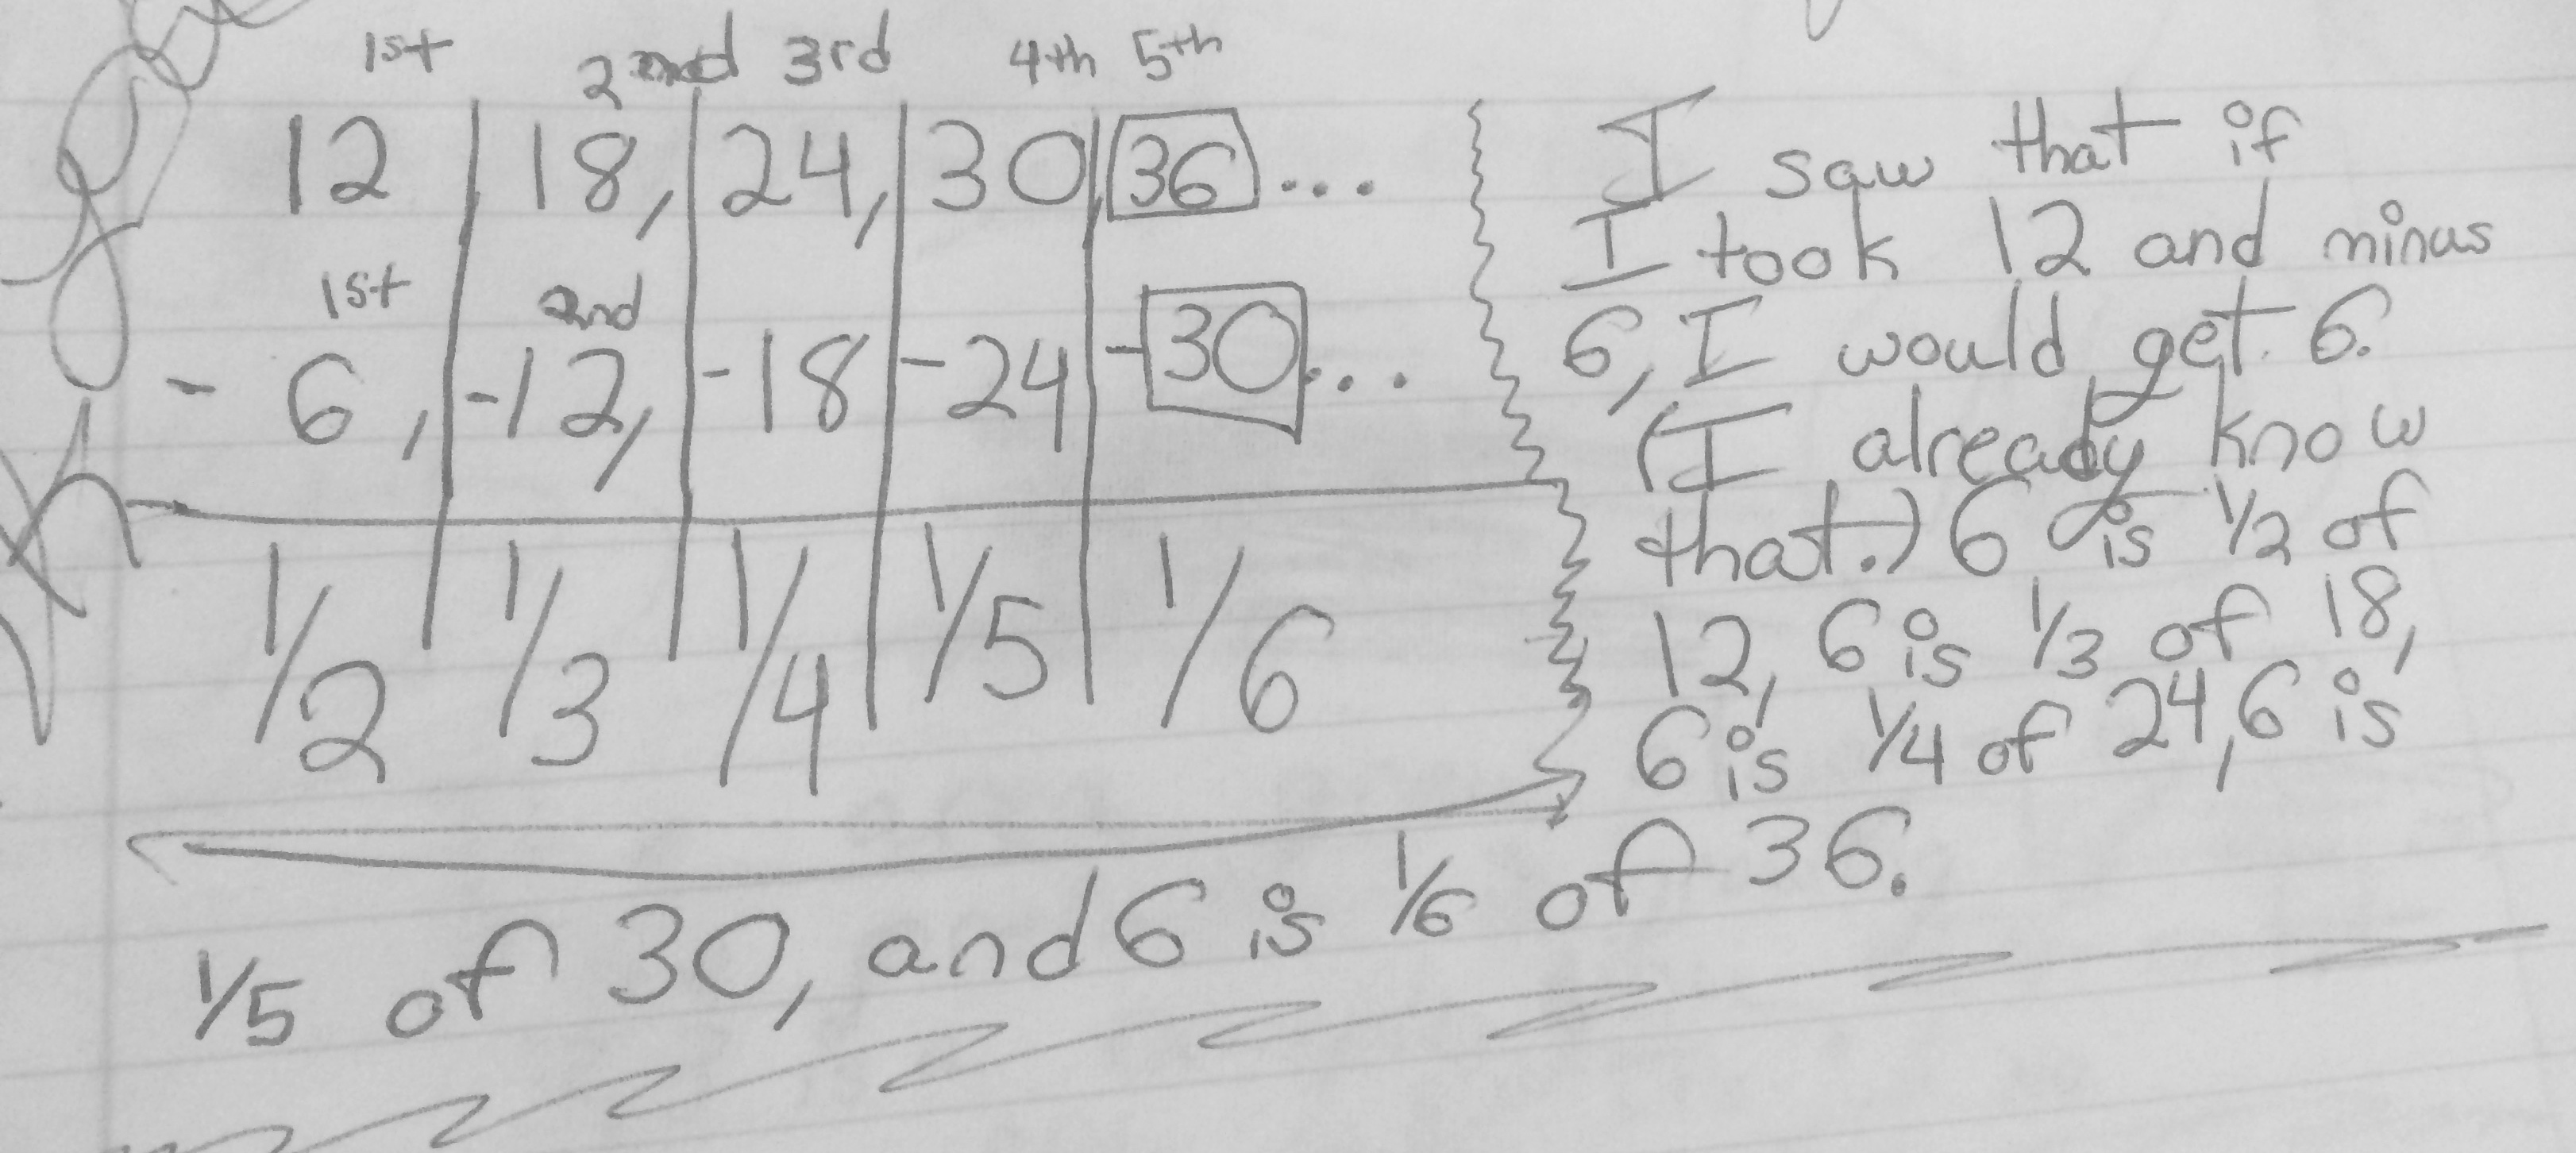 1st 2nd 3rd 4th 5th
12, 18, 24, 30, 36 ...
1st 2nd
- 6, -12, -18 -24 -30 ...
1/2 1/3 1/4 1/5 1/6
I saw that if
I took 12 and minus
6, I would get 6.
(I already know
that.) 6 is 1/2 of
12, 6 is 1/3 of 18,
6 is 1/4 of 24, 6 is
1/5 of 30, and 6 is 1/6 of 36.